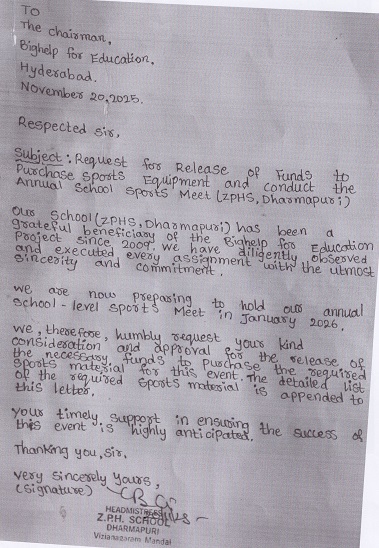 TO
The Chairman,
Bighelp for Education,
Hyderabad.
November 20, 2025.
Respected Sir,
Subject : Request for Release of Funds to
Purchase Sports Equipment and conduct the
Annual School Sports Meet (ZPHS, Dharmapuri)
Our School (ZPHS, Dharmapuri) has been a
grateful beneficiary of the Bighelp for Education
Project since 2009. We have diligently observed
and executed every assignment with the utmost
sincerity and commitment.
We are now preparing to hold our annual
School-level Sports Meet in January 2026.
We, therefore, humbly request your kind
consideration and approval for the release of
the necessary funds to purchase the required
Sports material for this event. The detailed list
of the required Sports material is appended to
this letter.
Your timely support in ensuring the success of
this event is highly anticipated.
Thanking you, Sir,
Very Sincerely Yours,
(Signature)
HEADMISTRESS
Z.P.H. SCHOOL
DHARMAPURI
Vizianagaram Mandal